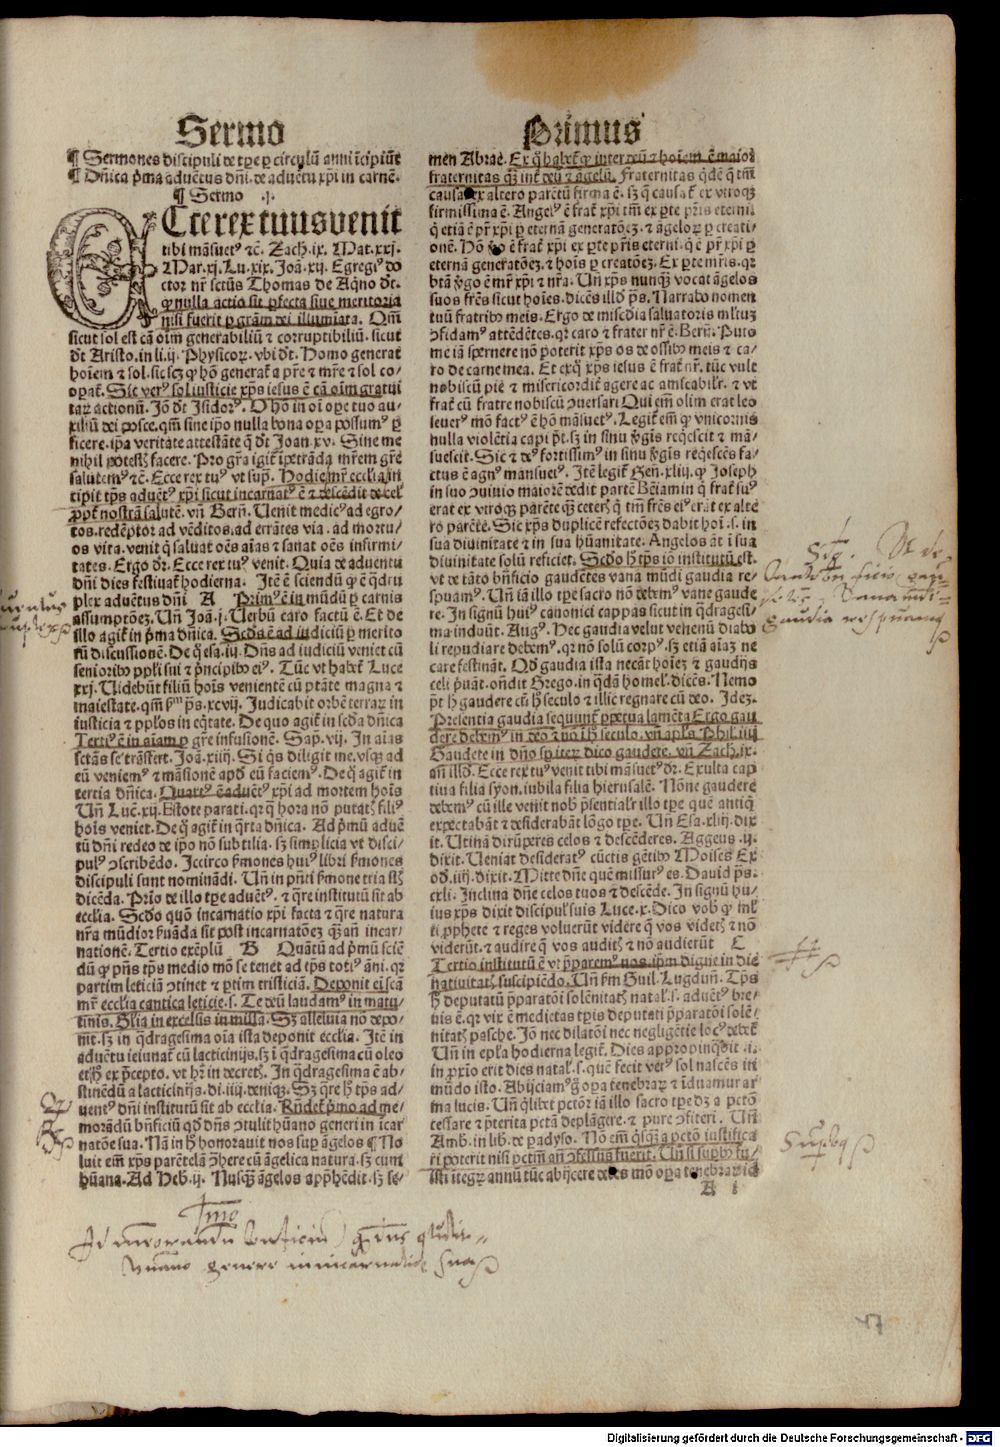 Sermo Primus
¶ Sermones discipuli de tpe p circulū anni īcipiūt
¶ Dn̄ica p̄ma aduētus dn̄i. de aduētu xp̄i in carnē.
¶ Sermo .j.
Ecce rex tuus venit
tibi māsuetꝰ ⁊c̄. Zach. ix. Mat. xxj.
Mar. xj. Lu. xix. Joā. xij. Egregiꝰ do
ctor nr̄ sctūs Thomas de Aqno dt̄.
ꝙ nulla actio sit ꝑfecta siue meritoria
nisi fuerit ꝑ grām dei illumīata. Qm̄
sicut sol est cā oīm generabiliū ⁊ corruptibiliū. sicut
dt̄ Aristo. in li. ij. Physicoꝝ. vbi dt̄. Homo generat
hoīem ⁊ sol. sic scꝫ ꝙ hō generat̉ a pr̄e ⁊ mr̄e ⁊ sol co-
opat̉. Sic verꝰ sol iusticie xp̄s iesus ē cā oīm gratui
taꝝ actionū. Jō dt̄ Isidorꝰ. O hō in oī oꝑe tuo au-
xiliū dei posce. qm̄ sine ip̄o nulla bona oꝑa possumꝰ ꝑ
ficere. ip̄a veritate attestāte q̄ dt̄ Joan. xv. Sine me
nihil potestꝭ facere. Pro gr̄a igit̉ īpetrāda mr̄em gr̄e
salutemꝰ ⁊c̄. Ecce rex tuꝰ vt sup̄. Hodie mr̄ ecclia in
cipit tp̄s aduētꝰ xp̄i sicut incarnatꝰ ē ⁊ descēdit de cel
ꝓpt̉ nostrā salutē. vn̄ Bern̄. Uenit medicꝰ ad egro-
tos. redēptor ad vēditos. ad errātes via. ad mortu-
os vita. venit q̄ saluat oēs aīas ⁊ sanat oēs infirmi-
tates. Ergo dr̄. Ecce rex tuꝰ venit. Quia de aduentu
dn̄i dies festiuat̉ hodierna. Itē ē sciendū ꝙ ē q̄dru
plex aduētus dn̄i A Primꝰ ē in mūdū ꝑ carnis
assumptōeꝫ. Un̄ Joā. j. Uerbū caro factū ē. Et de
illo agit̉ in p̄ma dn̄ica. Scd̄s ē ad iudiciū ꝑ merito
rū discussionē. De q̄ esa. iij. Dn̄s ad iudiciū veniet cū
seniorib⁹ ppl̄i sui ⁊ p̄ncipib⁹ eiꝰ. Tūc vt habet̉ Luce
xxj. Uidebūt filiū hoīs venientē cū ptāte magna ⁊
maiestate. qm̄ fm̄ ps̄. xcvij. Judicabit orbē terraꝝ in
iusticia ⁊ ppl̄os in eq̄tate. De quo agit̉ in scda dn̄ica
Tertiꝰ ē in aīam ꝑ gr̄e infusionē. Sap. vij. In aīas
sctās se trāsfert. Joā. xiiij. Si q̄s diligit me. vsqꝫ ad
eū veniemꝰ ⁊ māsionē apd̄ eū faciemꝰ. De q̄ agit̉ in
tertia dn̄ica. Quartꝰ ē aduētꝰ xp̄i ad mortem hoīs
Un̄ Luc̄. xij. Estote parati. qꝛ q̄ hora nō putatꝭ filiꝰ
hoīs veniet. De q̄ agit̉ in q̄rta dn̄ica. Ad p̄mū aduē
tū dn̄i redeo de ip̄o nō subtilia. sꝫ simplicia vt disci-
pulꝰ ɔscribēdo. Iccirco ẜmones huiꝰ libri ẜmones
discipuli sunt nominādi. Un̄ in pn̄ti ẜmone tria st̄
dicēda. Prīo de illo tꝑe aduētꝰ. ⁊ q̄re institutū sit ab
ecclia. Scd̄o quō incarnatio xp̄i facta ⁊ q̄re natura
nr̄a mūdior ẜuāda sit post incarnatōeꝫ qꝫ an̄ incar-
nationē. Tertio exēplū B Quātū ad p̄mū sciē
dū ꝙ pn̄s tp̄s medio mō se tenet ad tp̄s totiꝰ āni. qꝛ
partim leticiā ɔtinet ⁊ ꝑtim tristiciā. Deponit ei̇̄ scā
mr̄ ecclia cantica leticie. s. Te deū laudamꝰ in matu-
tinis. Glīa in excelsis in missa. Sꝫ alleluia nō depo-
nit. sꝫ in q̄dragesima oīa ista deponit ecclia. Itē in
aduētu ieiunat̉ cū lacticinijs. sꝫ ī q̄dragesima cū oleo
et h̄ ex p̄cepto. vt hr̄ in decretꝭ. In q̄dragesima ē ab-
stinēdū a lacticinijs. di. iiij. deniqꝫ. Sꝫ q̄re h̄ tp̄s ad-
uentꝰ dn̄i institutū sit ab ecclia. Rn̄det̉ p̄mo ad me-
morādū bn̄ficiū qd̄ dn̄s ɔtulit hūano generi in īcar
natōe sua. Nā in h̄ honorauit nos sup āgelos ¶ No
luit em̄ xp̄s parētelā ɔhere cū āgelica natura. sꝫ cum
hūana. Ad Heb. ij. Nusqꝫ āgelos app̄hēdit. sꝫ se-
men Abrae. Ex q̄ habet̉ ꝙ inter deū ⁊ hoīem ē maior
fraternitas qꝫ int̉ deū ⁊ āgelū. Fraternitas q̄dē q̄ tm̄
causat̉ ex altero parētū firma ē. sꝫ q̄ causat̉ ex vtroqꝫ
firmissima ē. Angelꝰ ē frat̉ xp̄i tm̄ ex ꝑte pr̄is eterni
q̄ etiā ē pr̄ xp̄i ꝑ eternā generatōeꝫ. ⁊ āgeloꝝ ꝑ creati-
onē. Hō ꝟo ē frat̉ xp̄i ex ꝑte pr̄is eterni. q̄ ē pr̄ xp̄i ꝑ
eternā generatōeꝫ. ⁊ hoīs ꝑ creatōeꝫ. Ex ꝑte mr̄is. qꝛ
btā ꝟgo ē mr̄ xp̄i ⁊ nr̄a. Un̄ xp̄s nunqꝫ vocat āgelos
suos fr̄es sicut hoīes. dicēs illd̄ ps̄. Narrabo nomen
tuū fratrib⁹ meis. Ergo de misc̄dia saluatoris ml̄tuꝫ
ɔfidamꝰ attēdētes. qꝛ caro ⁊ frater nr̄ ē. Bern̄. Puto
me iā spernere nō poterit xp̄s os de ossib⁹ meis ⁊ ca-
ro de carne mea. Et ex q̄ xp̄s iesus ē frat̉ nr̄. tūc vult
nobiscū pie ⁊ misericordit̉ agere ac amicabilr̄. ⁊ vt
frat̉ cū fratre nobiscū ɔuersari Qui em̄ olim erat leo
seuerꝰ mō factꝰ ē hō māsuetꝰ. Legit̉ em̄ ꝙ vnicornis
nulla violētia capi pt̄. sꝫ in sinu ꝟgis reqescit ⁊ mā-
suescit. Sic ⁊ deꝰ fortissimꝰ in sinu ꝟgis reqescēs fa-
ctus ē agnꝰ mansuetꝰ. Itē legit̉ Gen̄. xliij. ꝙ Joseph
in suo ɔuiuio maiorē dedit partē Bēiamin q̄ frat̉ suꝰ
erat ex vtroqꝫ parēte qꝫ ceterꝭ q̄ tm̄ fr̄es eiꝰ erāt ex alte
ro parēte. Sic xp̄s duplicē refectōeꝫ dabit hoī. s. in
sua diuinitate ⁊ in sua hūanitate. Angelos āt ī sua
diuinitate solū reficiet. Scd̄o h̄ tp̄s iō institutū est.
vt de tāto bn̄ficio gaudētes vana mūdi gaudia re-
spuamꝰ. Un̄ iā illo tꝑe sacro nō debemꝰ vane gaude
re. In signū huiꝰ canonici cappas sicut in q̄dragesi-
ma induūt. Augꝰ. Hec gaudia velut venenū diabo
li repudiare debemꝰ. qꝛ nō solū corpꝰ. sꝫ etiā aīaꝫ ne
care festināt. Qd̄ gaudia ista necāt hoīeꝫ ⁊ gaudijs
celi p̄uāt. on̄dit Grego. in q̄dā homel̄. dicēs. Nemo
pt̄ h̄ gaudere cū h̄ seculo ⁊ illic regnare cū deo. Ideꝫ.
Presentia gaudia sequunt̉ ꝑpetua lamēta Ergo gau
dere debemꝰ in deo ⁊ nō ī h̄ seculo. vn̄ apl̄s Phil. iiij
Gaudete in dn̄o sp̄ iteꝝ dico gaudete. vn̄ Zach. ix.
an̄ illd̄. Ecce rex tuꝰ venit tibi māsuetꝰ dr̄. Exulta cap
tiua filia syon. iubila filia hierusalē. Nōne gaudere
debemꝰ cū ille venit nob̄ p̄sentialr̄ illo tꝑe quē antiq̄
expectabāt ⁊ desiderabāt lōgo tꝑe. Un̄ Esa. xliij. dix
it. Utinā dirūperes celos ⁊ descēderes. Aggeus .ij.
dixit. Ueniat desideratꝰ cūctis gētib⁹ Moises Ex
od. iiij. dixit. Mitte dn̄e quē missurꝰ es. Dauid ps̄.
cxli. Inclina dn̄e celos tuos ⁊ descēde. In signū hu-
ius xp̄s dixit discipul̉ suis Luce. x. Dico vob̄ ꝙ ml̄
ti ꝓphete ⁊ reges voluerūt videre q̄ vos videtꝭ ⁊ nō
viderūt. ⁊ audire q̄ vos auditꝭ ⁊ nō audierūt C
Tertio institutū ē vt p̄paremꝰ nos ip̄m digne in die
natiuitatꝭ suscipiēdo. Un̄ ẜm Guil. Lugdun̄. Tp̄s
h̄ deputatū p̄paratōi solēnitatꝭ natal̉. s. aduētꝰ bre-
uis ē. qꝛ vix ē medietas tp̄is deputati p̄paratōi solē-
nitatꝭ pasche. Jō nec dilatōi nec negligētie locꝰ debet̉
Un̄ in epl̄a hodierna legit̉. Dies appropinq̄bit .i.
in ꝓxīo erit dies natal̉. s. quē fecit verꝰ sol nascēs in
mūdo isto. Abijciamꝰ ḡ oꝑa tenebraꝝ ⁊ īduamur ar
ma lucis. Un̄ q̄libet pctōr iā illo sacro tꝑe dꝫ a pctō
cessare ⁊ p̄terita pctā deplāgere. ⁊ pure ɔfiteri. Un̄
Amb. in lib. de padyso. Nō em̄ q̄sqꝫ a pctō iustifica
ri poterit nisi pctm̄ an̄ ɔfessum fuerit. Un̄ si
A i
47
Digitalisierung gefördert durch die Deutsche Forschungsgemeinschaft - DFG